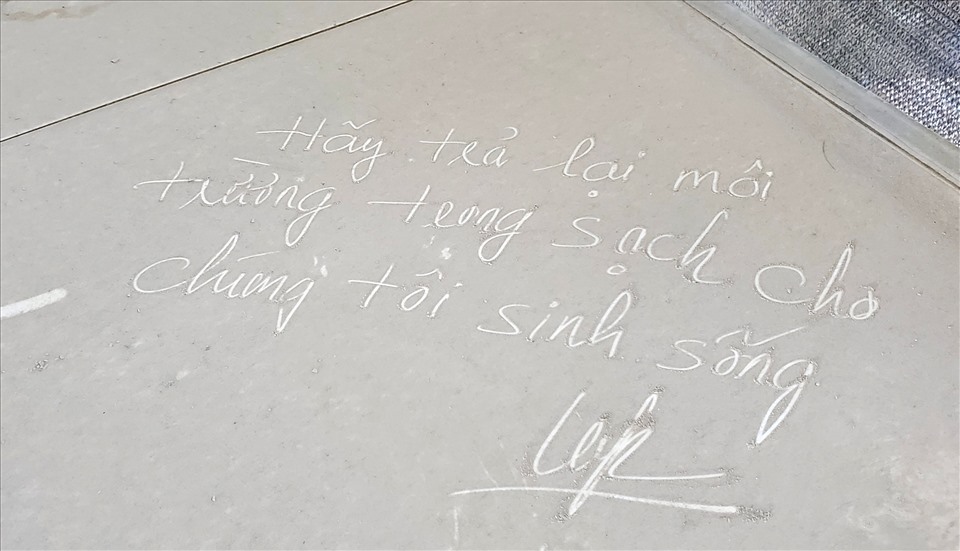 Hãy trả lại môi
trường trong sạch cho
chúng tôi sinh sống